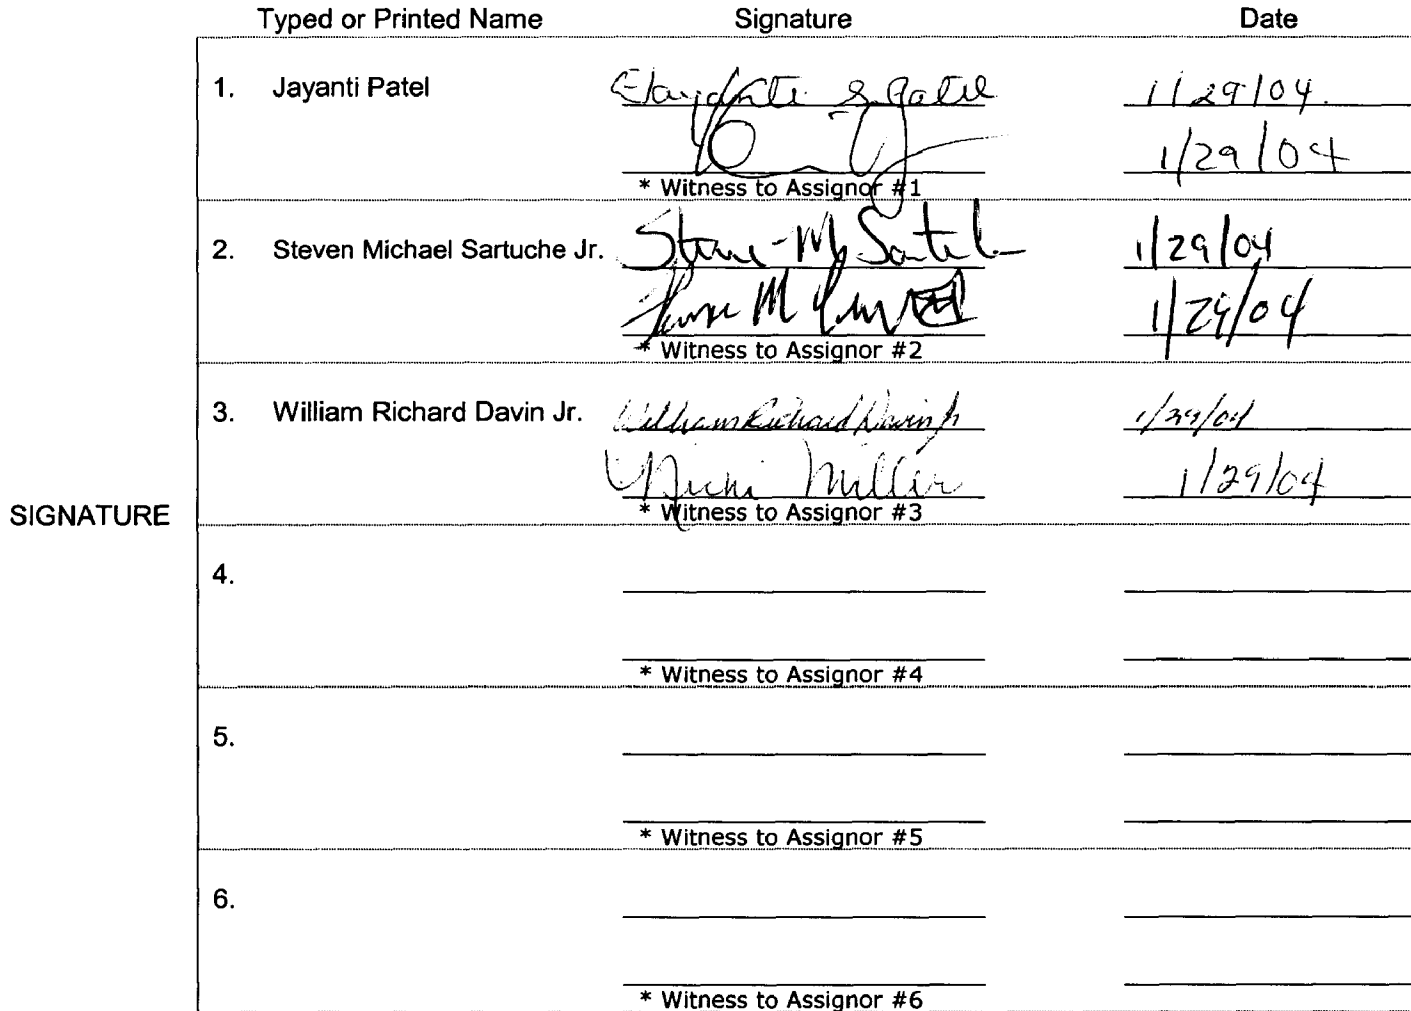 Typed or Printed Name Signature Date
1. Jayanti Patel Jayanti S. Patel 1/29/04.
1/29/04
* Witness to Assignor #1
2. Steven Michael Sartuche Jr. 1/29/04
1/29/04
* Witness to Assignor #2
3. William Richard Davin Jr. William Richard Davin Jr 1/29/04
Nicki Miller 1/29/04
* Witness to Assignor #3
SIGNATURE
4.
* Witness to Assignor #4
5.
* Witness to Assignor #5
6.
* Witness to Assignor #6